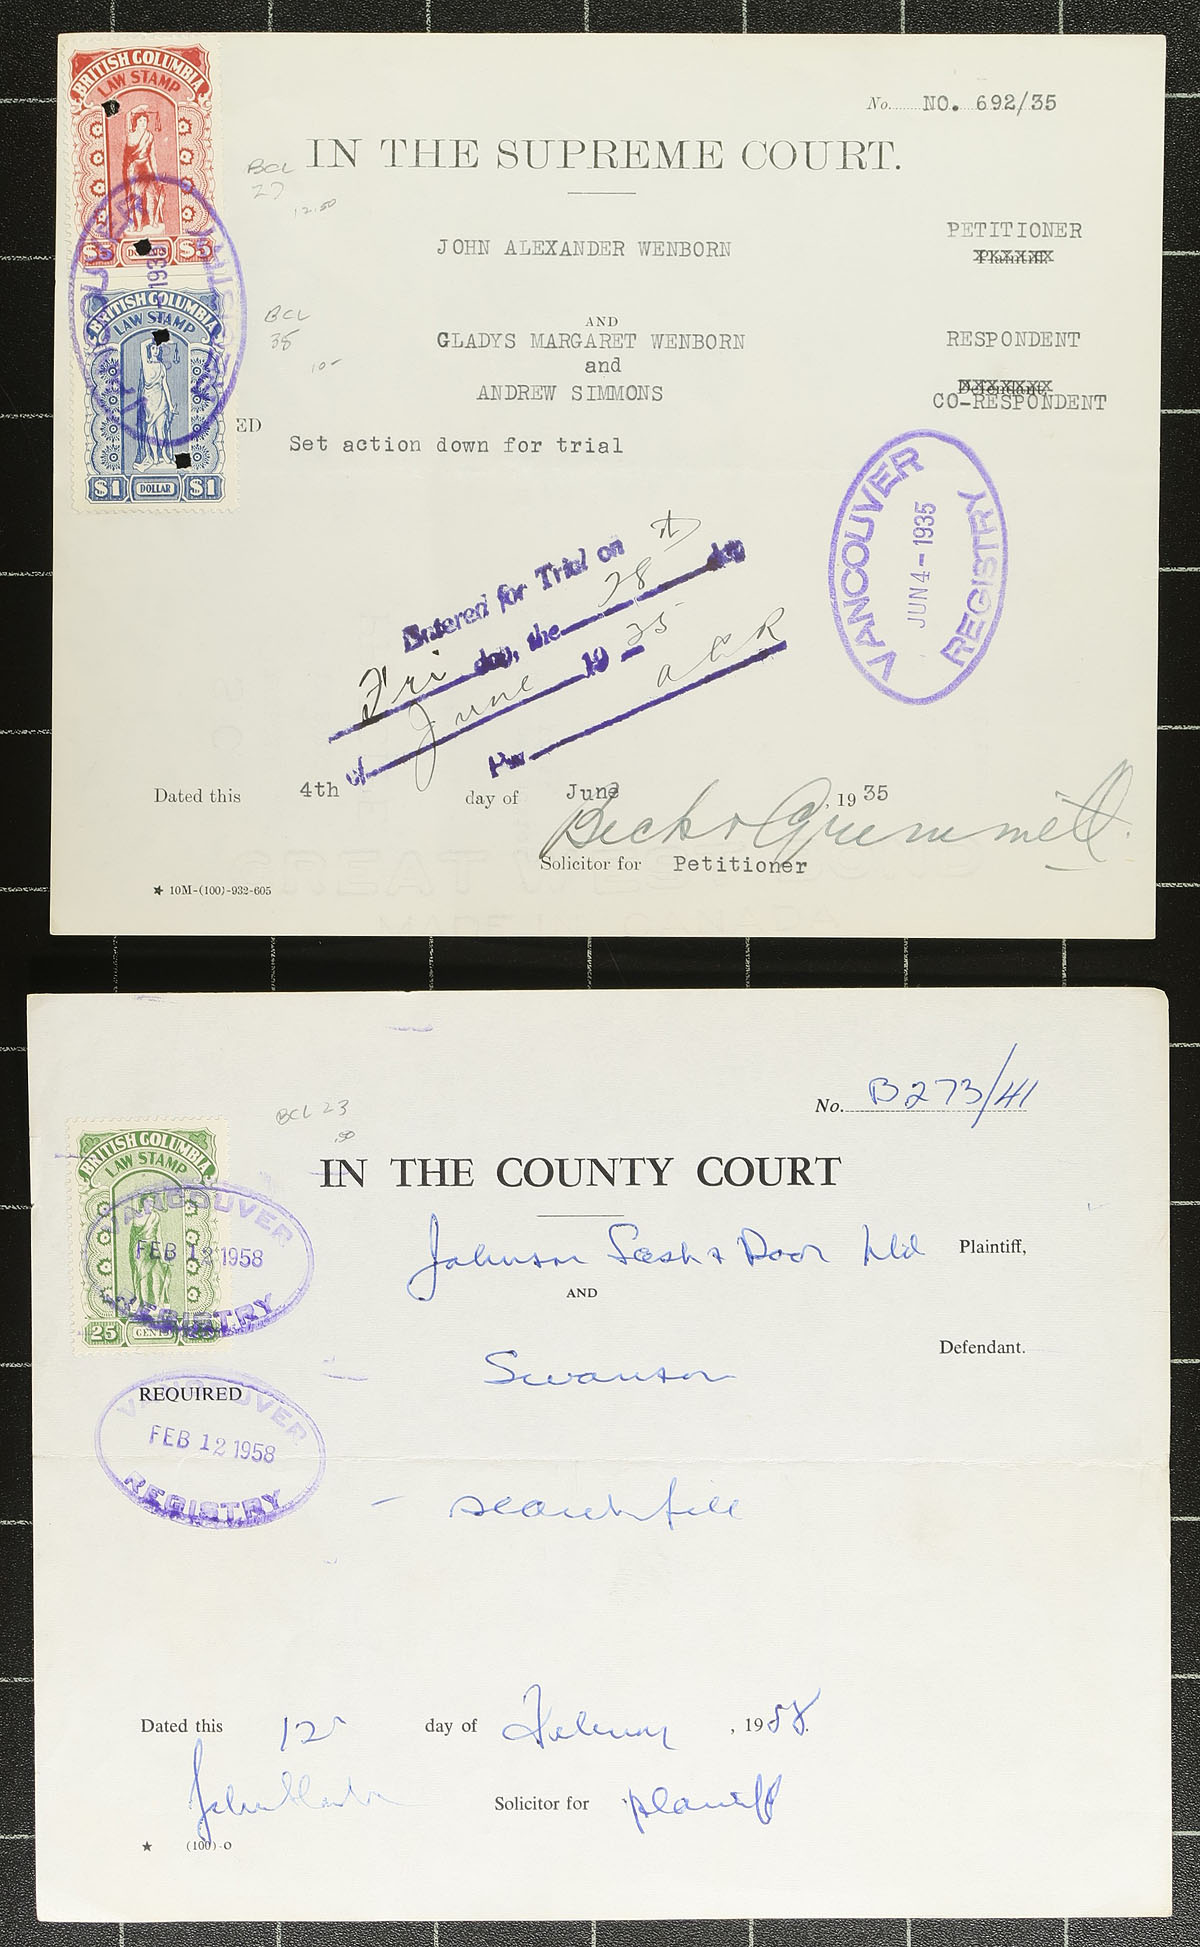 BRITISH COLUMBIA
LAW STAMP
$5 DOLLARS $5
BRITISH COLUMBIA
LAW STAMP
$1 DOLLAR $1
No. NO. 692/35
IN THE SUPREME COURT.
BCL
27
12.50
JOHN ALEXANDER WENBORN
PETITIONER
Plaintiff
BCL
38
10-
AND
GLADYS MARGARET WENBORN
RESPONDENT
and
ANDREW SIMMONS
Defendant,
CO-RESPONDENT
ED
Set action down for trial
VANCOUVER
JUN 4-1935
REGISTRY
Entered for Trial on
Fri day, the 28 day
of June 19 35
Per
Dated this 4th day of June, 1935
Beck & Grimmett.
Solicitor for Petitioner
★ 10M-(100)-932-605
BRITISH COLUMBIA
LAW STAMP
25 CENTS
VANCOUVER
FEB 12 1958
REGISTRY
BCL 23
.50
No. B273/41
IN THE COUNTY COURT
Johnson Sash & Door Ltd Plaintiff,
AND
Swanson
Defendant.
REQUIRED
VANCOUVER
FEB 12 1958
REGISTRY
- search file
Dated this 12 day of February, 1958.
Solicitor for plaintiff
★ (100)-O